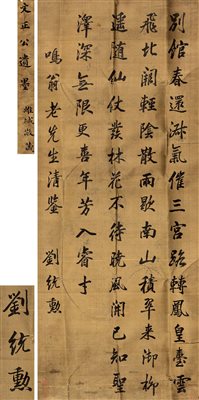 別館春還淑氣催三宮路轉鳳皇臺雲
飛北闕輕陰散雨歇南山積翠来御柳
遥随仙仗發林花不待曉風開已知聖
澤深无限更喜年芳入睿才
鳴翁老先生清鑒 劉統勳
文正公遺墨
劉統勳